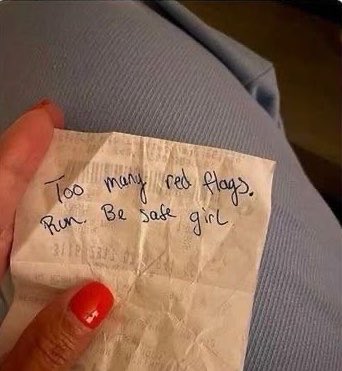 Too many red flags.
Run. Be safe girl